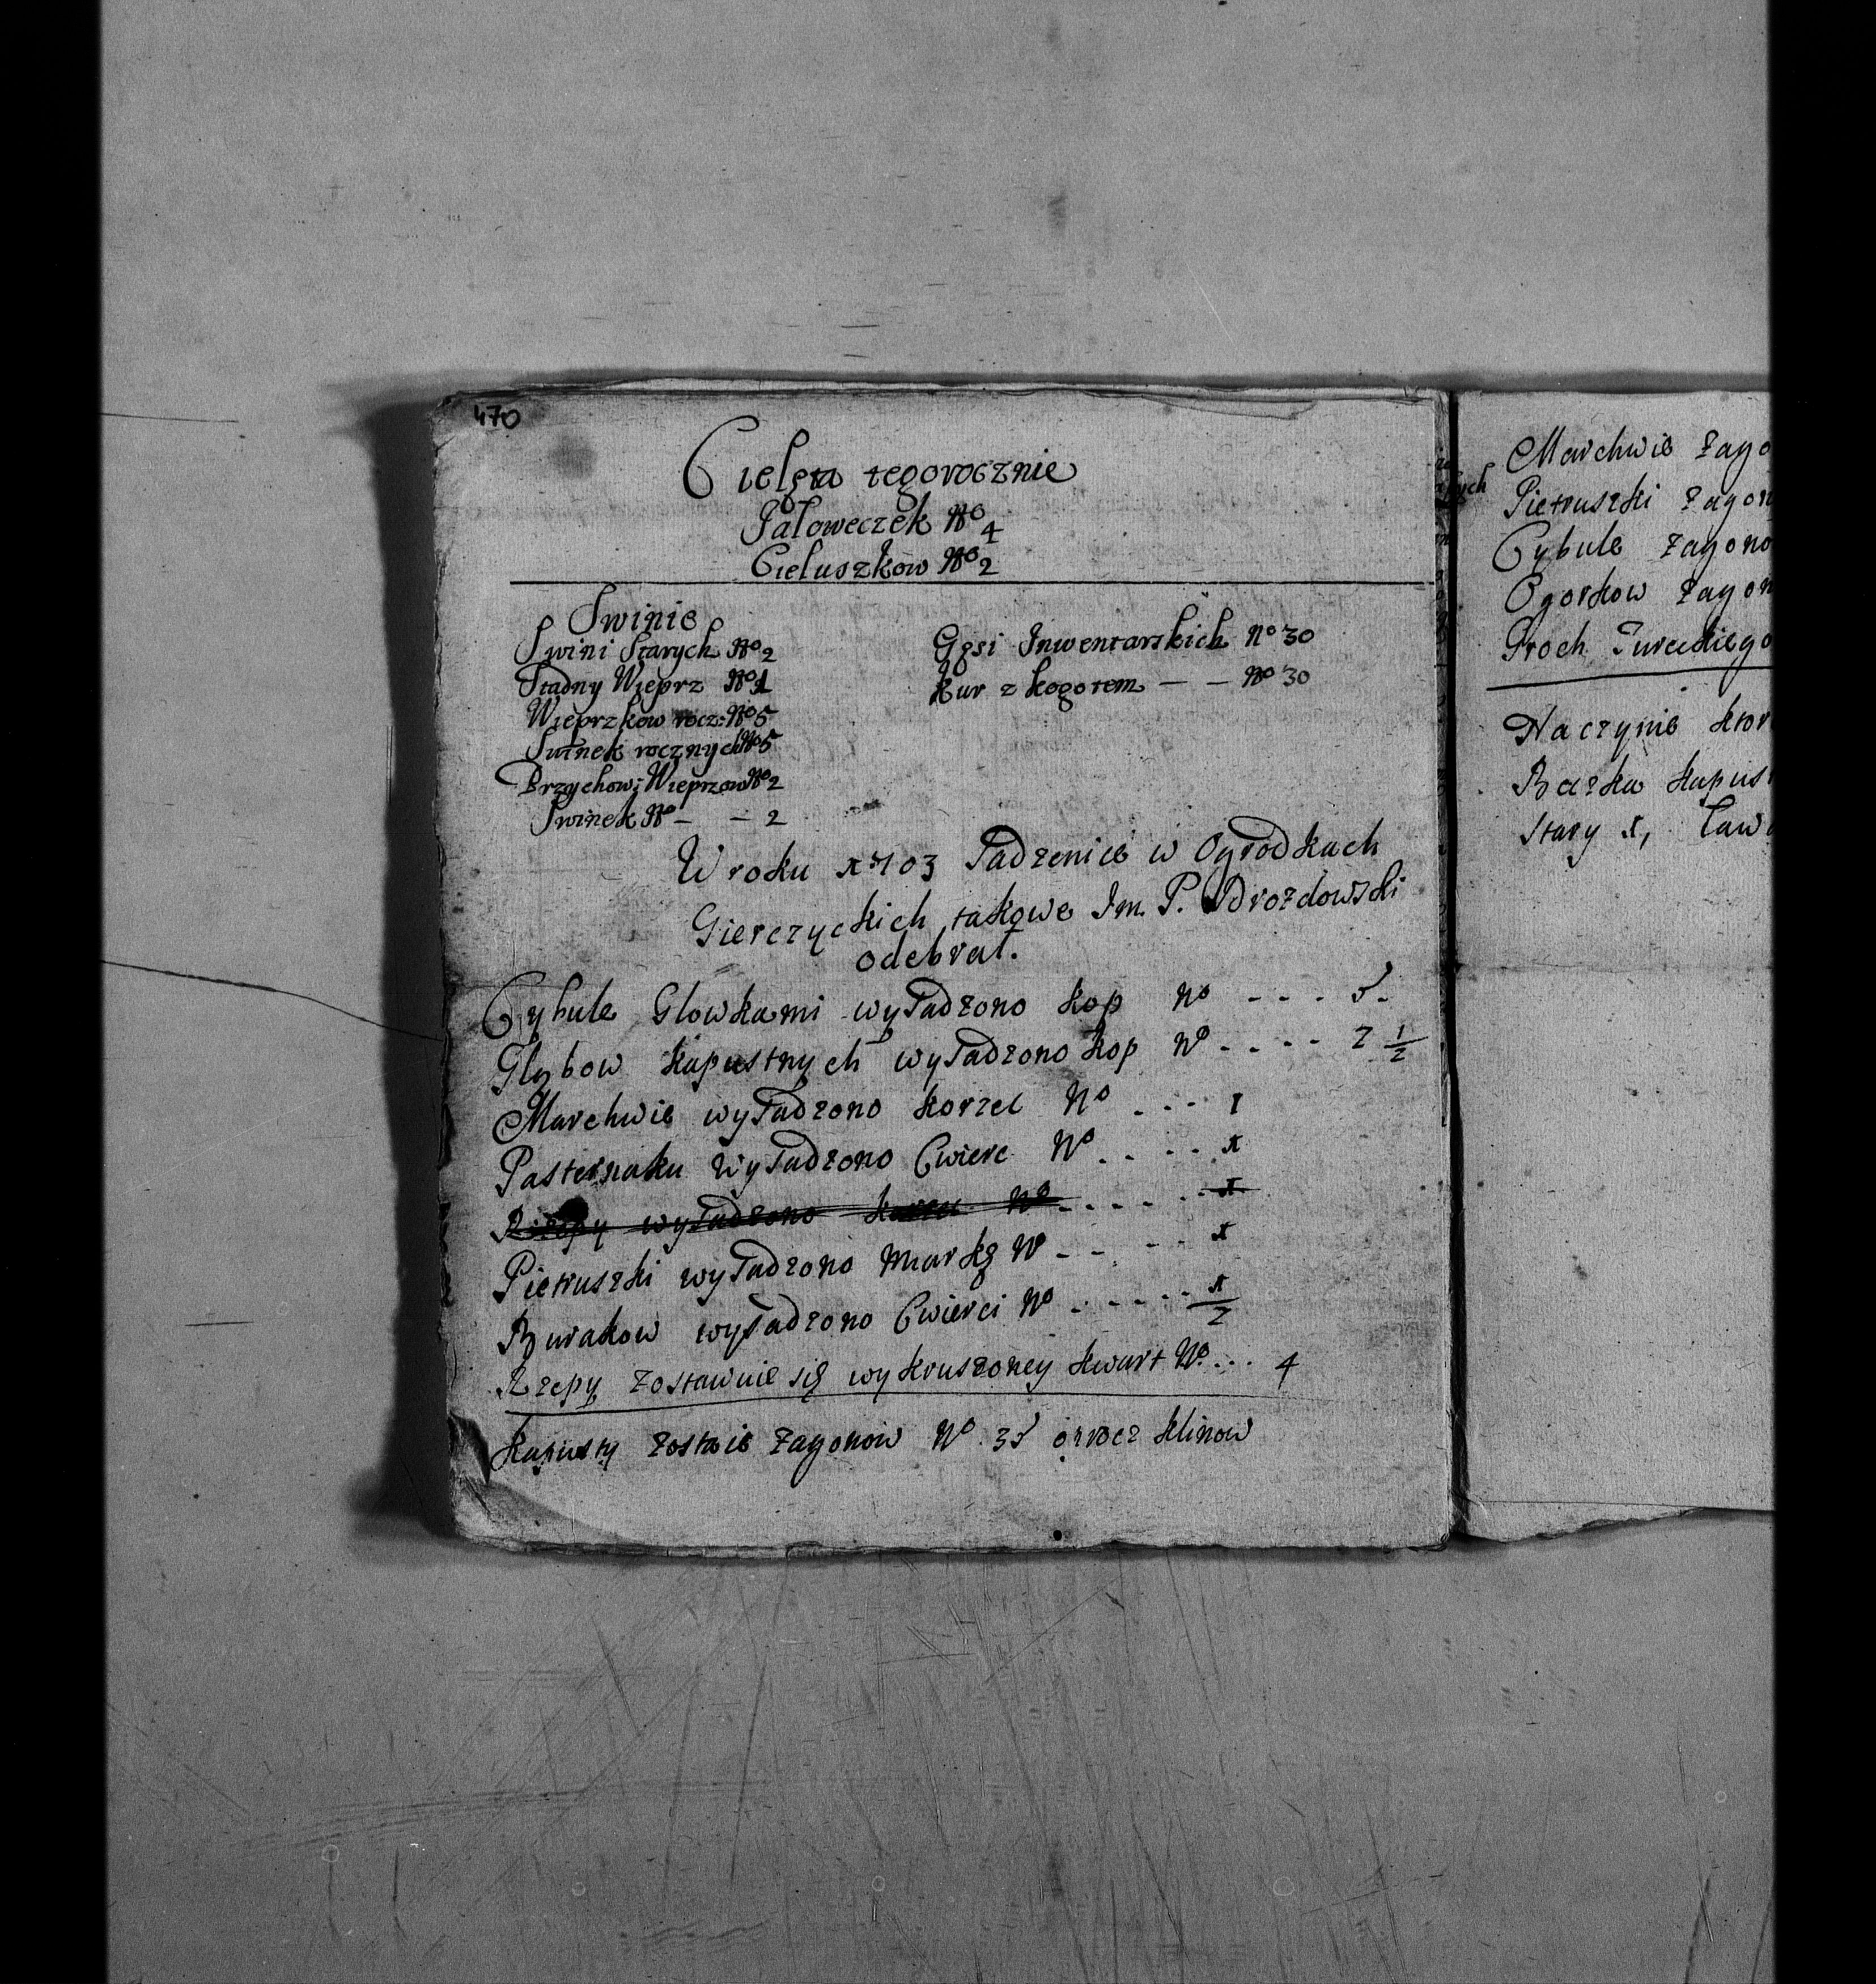 470
Cielęta tegorocznie
Jałoweczek No 4
Cieluszkow No 2
Swinie
Swini Starych No 2
Stadny Wieprz No 1
Wieprzkow rocz: No 5
Swinek rocznych No 5
Przychow: Wieprzow No 2
Swinek No - - 2
Gęsi Inwentarskich No 30
Kur z kogotem — — No 30
W roku 1703 Sadzenie w Ogrodkach
Gierczyckich takowe Im. P. Drozdowski
odebrał.
Cybule Glowkami wysadzono kop No - - - 5.
Głębow kapustnych wysadzono kop No - - - - 2 1/2
Marchwie wysadzono korzec No - - - 1
Pasternaku wysadzono Cwierc No - - - - 1
Rzepy wysadzono korzec No - - - - - 1
Pietruszki wysadzono miarkę No - - - - 1
Burakow wysadzono Cwierci No - - - - - 1/2
Rzepy zostawuie się wykruszoney kwart No... 4
Kapusty zostaie zagonow No. 35 oprocz klinow
Marchwie zago
Pietruszki zagon
Cybule zagono
Ogorkow zagon
Groch Tureckiego
Naczynie ktor
Beczka kapus
Stary 1, Ław